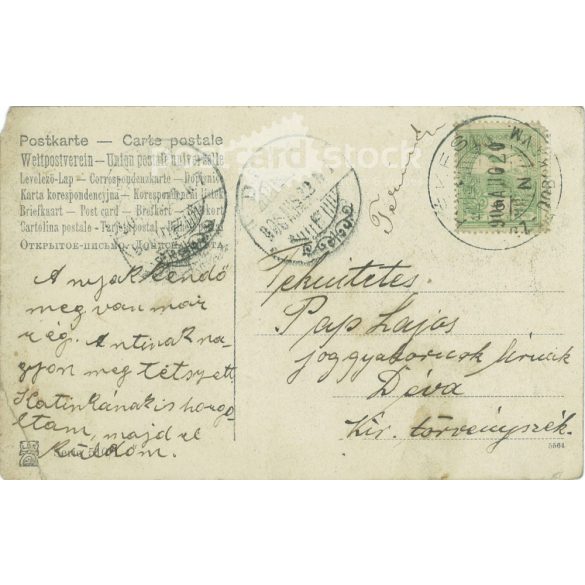 Postkarte — Carte postale
Weltpostverein — Union postale universelle
Levelező-Lap — Correspondenzkarte — Dopisnice
Karta korespondencyjna — Korespondenční lístek
Briefkaart — Post card — Brefkort — Brevkort
Cartolina postale —
ОТКРЫТОЕ-ПИСЬМО
card stock
A nyakkendő
meg van már
rég. Antinak na-
gyon megtetszett
Katinkának is horgo-
ltam, majd el
küldöm.
Tekintetes
Pap Lajos
joggyakornok úrnak
Déva
Kir. törvényszék.
5564